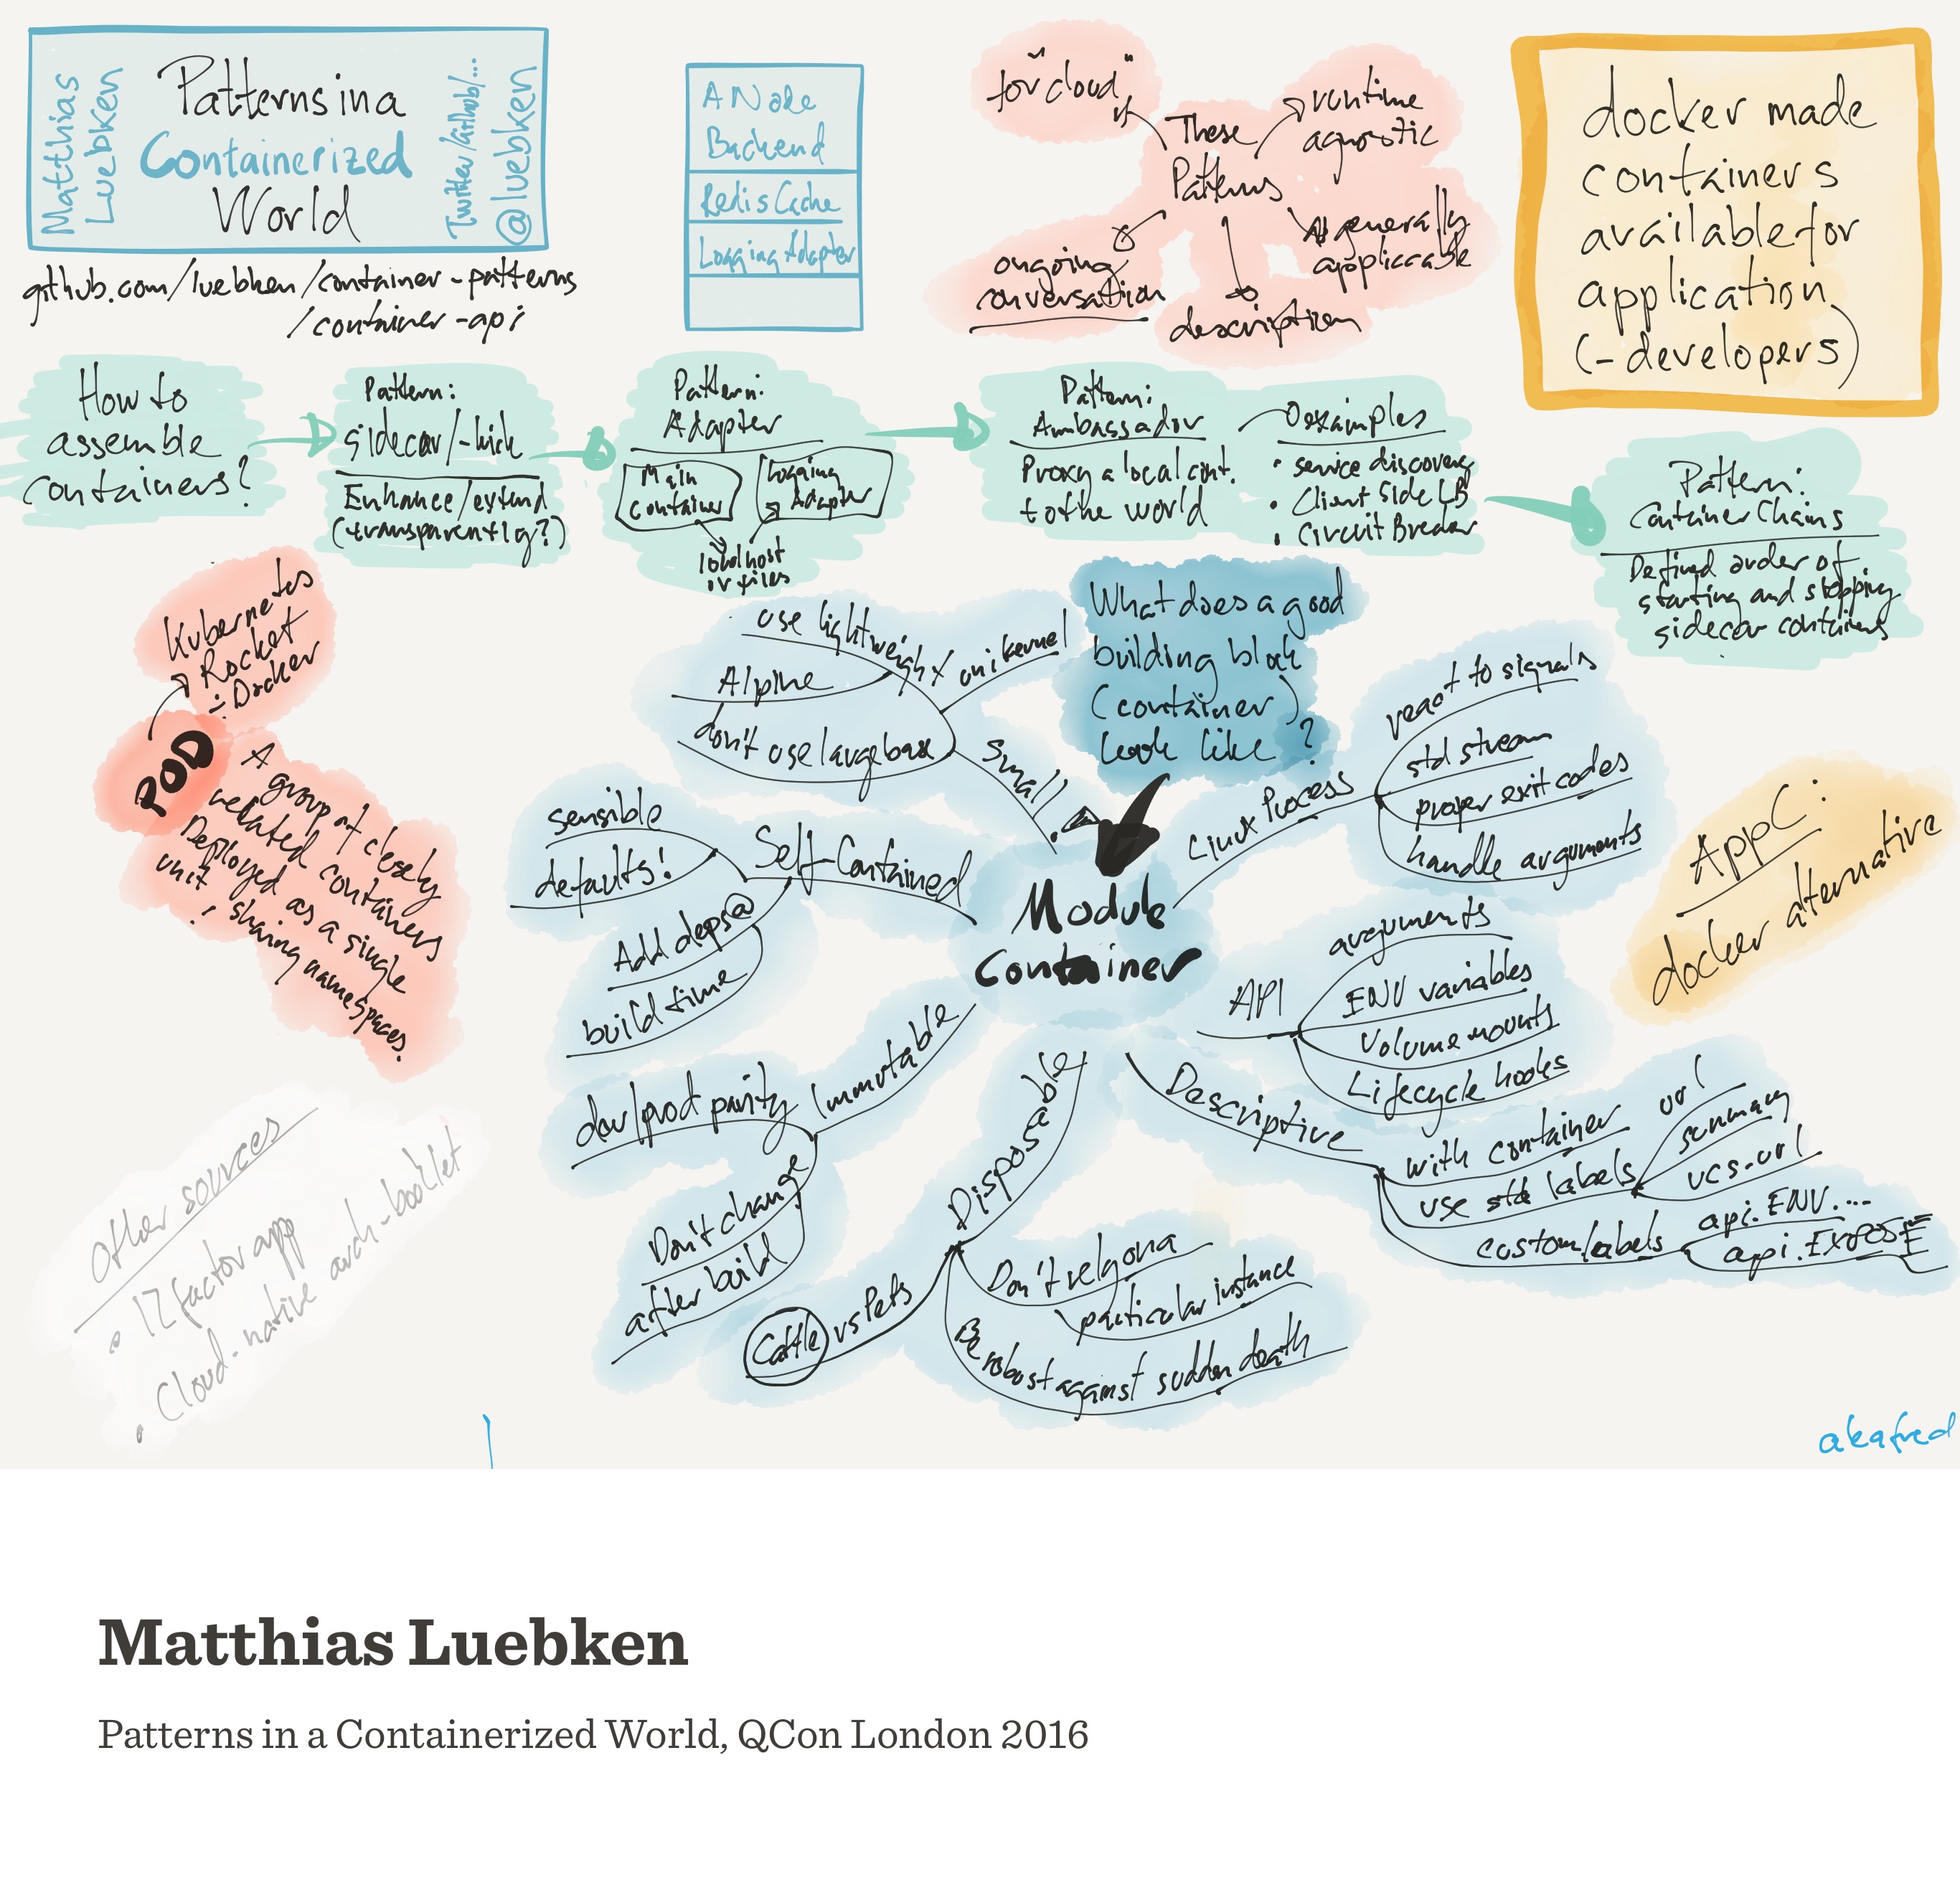 Matthias
Luebken
Patterns in a
Containerized
World
Twitter/Github/...
@luebken
github.com/luebken/container-patterns
/container-api
A Node
Backend
Redis Cache
Logging Adapter
These
Patterns
"for cloud"
runtime
agnostic
generally
applicable
description
ongoing
conversation
docker made
containers
available for
application
(-developers)
How to
assemble
containers?
Pattern:
sidecar/-kick
Enhance/extend
(transparently?)
Pattern:
Adapter
Main
container
Logging
Adapter
localhost
or files
Pattern:
Ambassador
Proxy a local cont.
to the world
examples
• service discovery
• Client Side LB
• Circuit Breaker
Pattern:
Container Chains
Defined order of
starting and stopping
sidecar containers
Kubernetes
Rocket
÷ Docker
POD
A group of closely
related containers
Deployed as a single
unit
! sharing namespaces.
What does a good
building block
(container)
look like?
Module
Container
small!
use lightweight
unikernel
Alpine
don't use large base
Self-Contained
sensible
defaults!
Add deps @
build time
Immutable
dev/prod parity
Don't change
after build
Disposable
Cattle vs Pets
Don't rely on a
particular instance
Be robust against sudden death
Linux Process
react to signals
std stream
proper exit codes
handle arguments
API
arguments
ENV variables
Volume mounts
Lifecycle hooks
Descriptive
with container
use std labels
url
summary
vcs-url
custom labels
api.ENV....
api.EXPOSE
AppC:
docker alternative
Other sources
• 12 factor app
• Cloud-native arch-booklet
akafred
Matthias Luebken
Patterns in a Containerized World, QCon London 2016